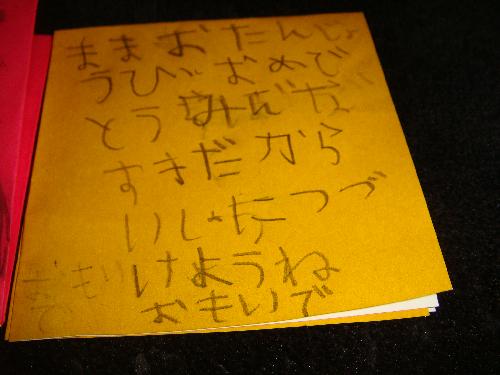 ままおたんじょ
うびおめで
とうみんな
すきだから
いしょにつづ
けようね
おもいで